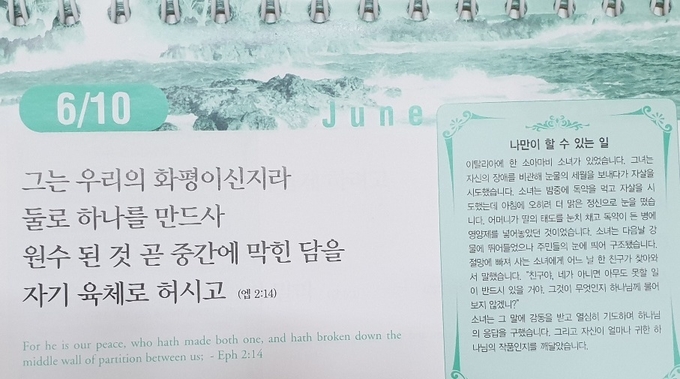 6/10
June
그는 우리의 화평이신지라
둘로 하나를 만드사
원수 된 것 곧 중간에 막힌 담을
자기 육체로 허시고 (엡 2:14)
For he is our peace, who hath made both one, and hath broken down the
middle wall of partition between us; - Eph 2:14
나만이 할 수 있는 일
이탈리아에 한 소아마비 소녀가 있었습니다. 그녀는
자신의 장애를 비관해 눈물의 세월을 보내다가 자살을
시도했습니다. 소녀는 밤중에 독약을 먹고 자살을 시
도했는데 아침에 오히려 더 맑은 정신으로 눈을 떴습니
다. 어머니가 딸의 태도를 눈치 채고 독약이 든 병에
영양제를 넣어놓았던 것이었습니다. 소녀는 다음날 강
물에 뛰어들었으나 주민들의 눈에 띄어 구조됐습니다.
절망에 빠져 사는 소녀에게 어느 날 한 친구가 찾아와
서 말했습니다. "친구야, 네가 아니면 아무도 못할 일
이 반드시 있을 거야. 그것이 무엇인지 하나님께 물어
보지 않겠니?"
소녀는 그 말에 감동을 받고 열심히 기도하며 하나님
의 응답을 구했습니다. 그리고 자신이 얼마나 귀한 하
나님의 작품인지를 깨달았습니다.